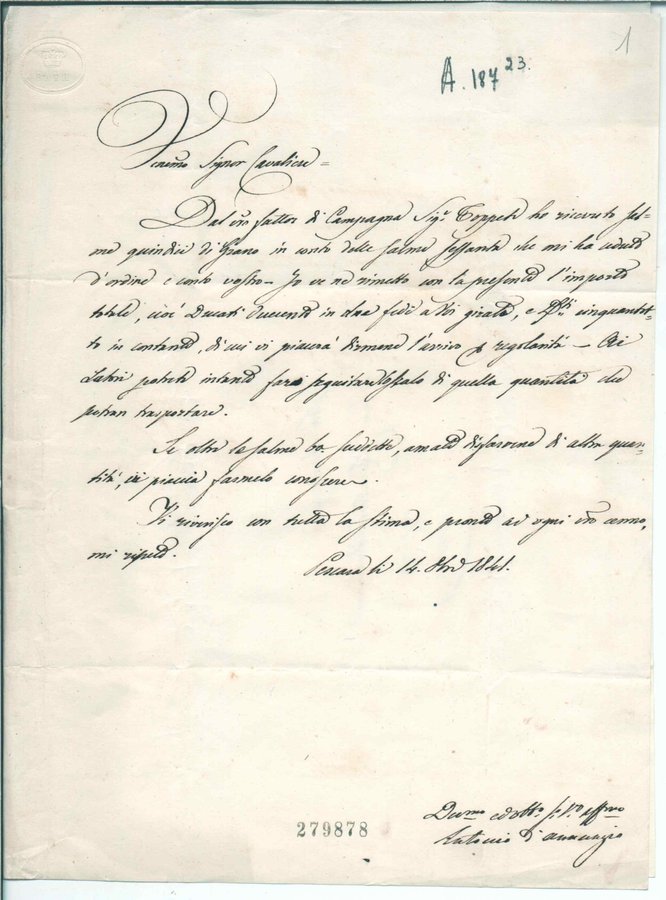 1
A. 187 23.
Signor Cavaliere =
Dal Vro fattor di Campagna Sigr Toppeti ho ricevuto sal-
me quindici di Grano in conto delle salme sessanta che mi ha venduto
d'ordine e conto vostro - Io ve ne rimetto con la presente l'importo
totale, cioè Ducati duecento in due fedi a Voi girate, e cinquantot-
to in contante, di cui vi piacerà darmene l'avviso p regolarità -
potrete intanto farsi seguitare di quella quantità che
potran trasportare.
Se oltre le salme 60 suddette, amate disfarvene di altre quan-
tità, vi piaccia farmelo conoscere.
Vi riverisco con tutta la stima, e pronto ad ogni vro cenno,
mi ripeto.
Pescara li 14. 8bre 1841.
Devmo ed obbmo
Antonio d'Annunzio
279878